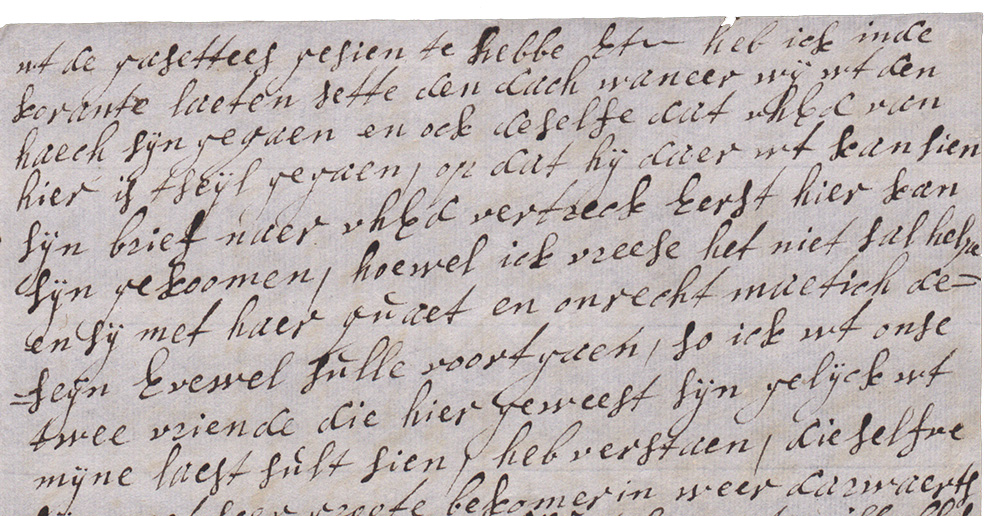 wt de gasettees gesien te hebbe Etc heb ick inde
korante laeten sette den dach waneer wÿ wt den
haech sÿn gegaen en ock deselfe dat vhEd van
hier is tseÿl gegaen, op dat hÿ daer wt kan sien
sÿn brief naer vhEd vertreck Eerst hier kan
sÿn gekoomen, hoewel ick vreese het niet sal helpe
en sÿ met haer quaet en onrecht maetich de=
=seÿn Evewel sulle voort gaen, so ick wt onse
twee vriende die hier geweest sÿn gelÿck wt
mÿne laest sult sien, heb verstaen, die selfve
groote bekomerin weer darwaerts